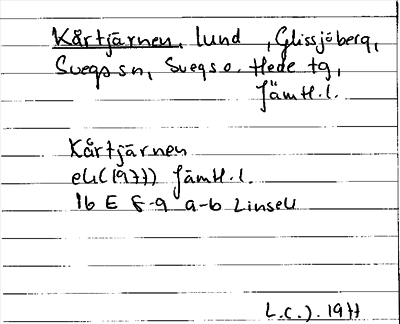 Kårtjärnen, lund, Glissjöberg,
Svegs sn, Svegs o. Hede tg,
Jämtl.l.
Kårtjärnen
ek(1977) Jämtl.l.
16 E 8-9 a-b Linsell
L.C.J. 1977